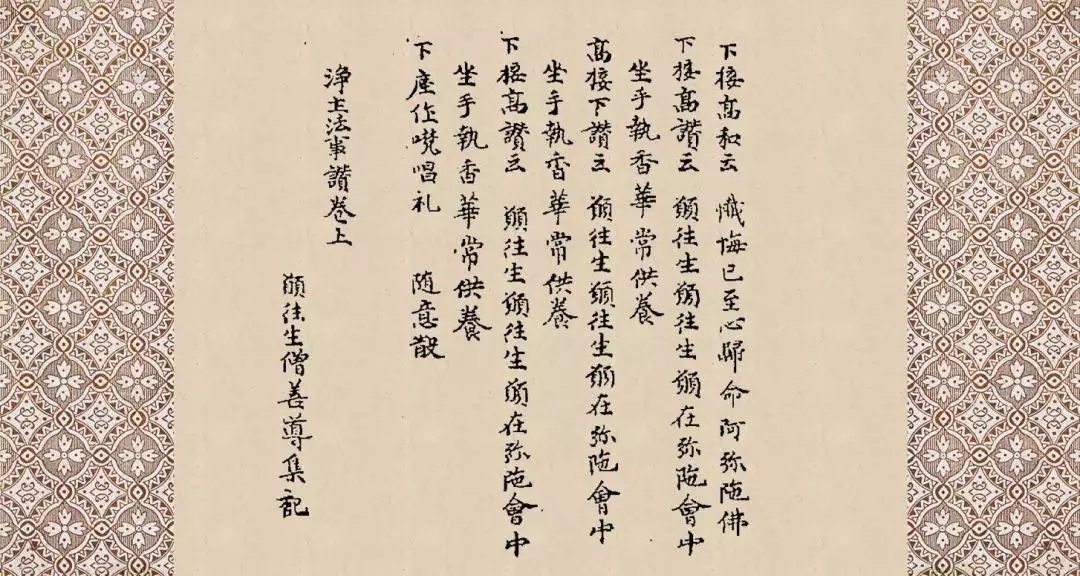 下接高和云　懺悔已至心歸命阿弥陁佛
下接高讚云　願往生願往生願在弥陁會中
坐手執香華常供養
高接下讚云　願往生願往生願在弥陁會中
坐手執香華常供養
下接高讚云　願往生願往生願在弥陁會中
坐手執香華常供養
下座作唄唱礼　随意散
淨土法事讚卷上
願往生僧善導集記